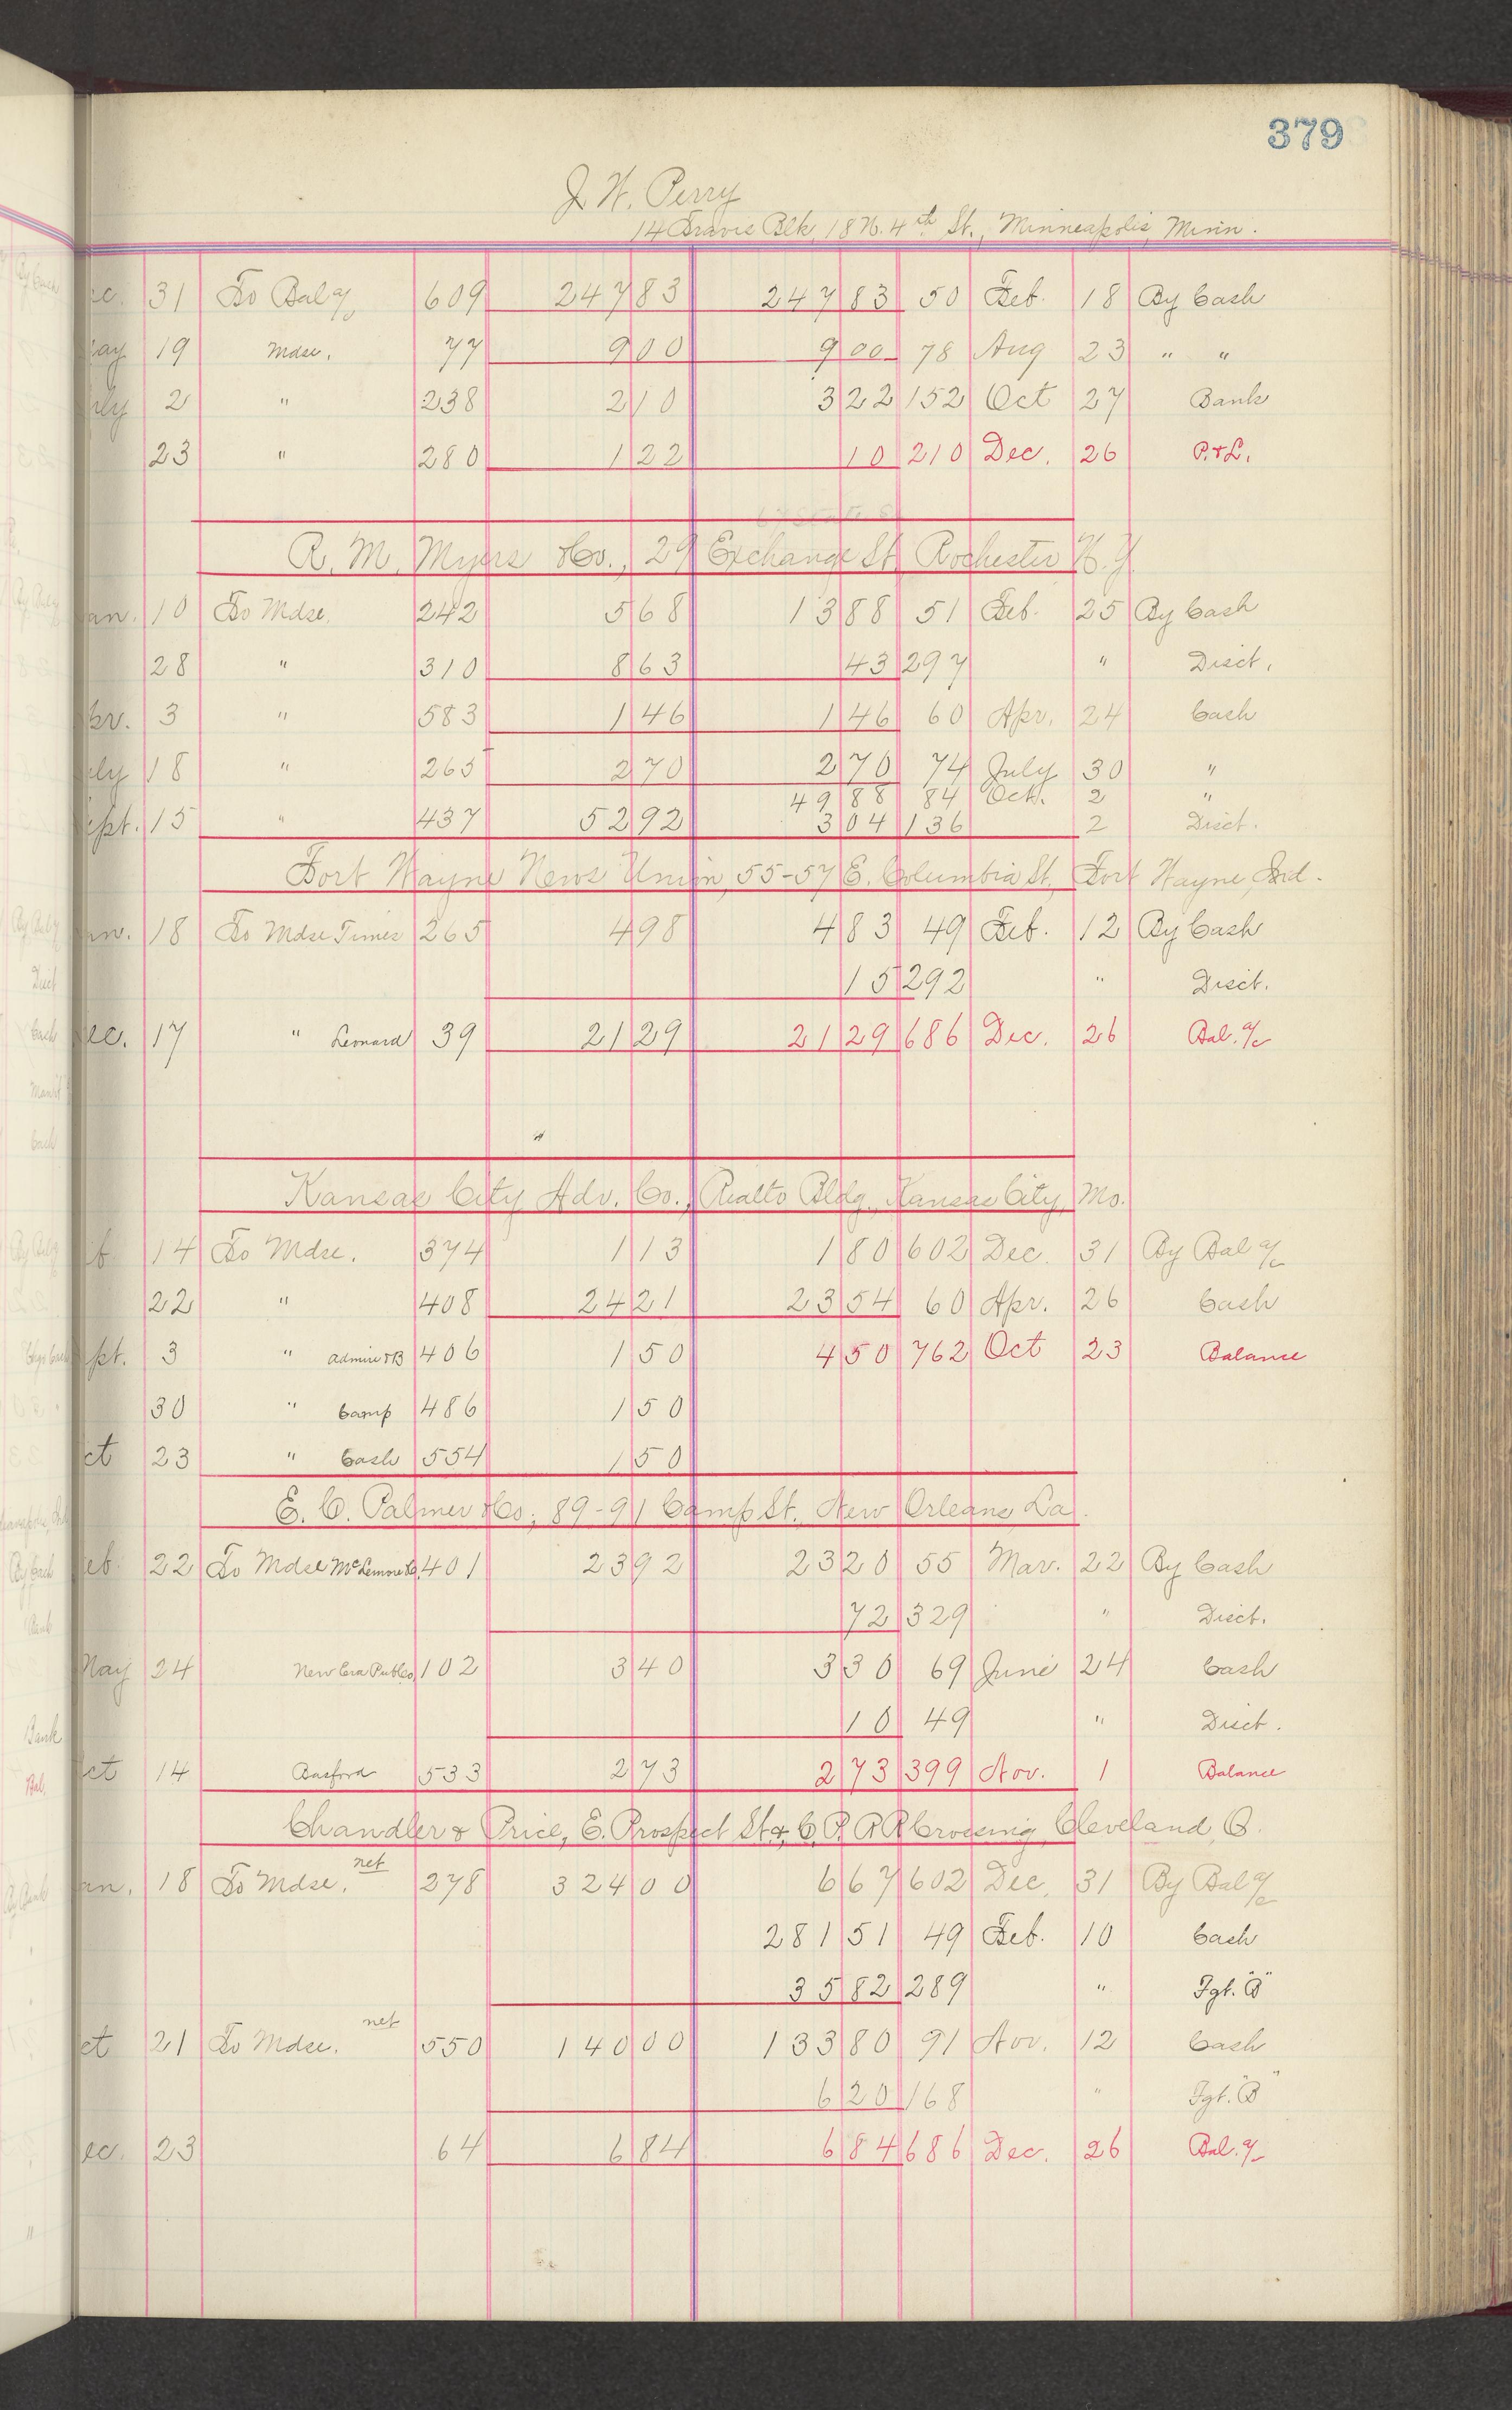 379
J. W. Perry
14 Travis Blk, 18 N. 4th St., Minneapolis, Minn.
ec. 31 To Bal a/c 609 247 83 247 83 50 Feb. 18 By Cash
ay 19 Mdse. 77 9 00 9 00 78 Aug 23 " "
ly 2 " 238 2 10 3 22 152 Oct 27 Bank
23 " 280 1 22 10 210 Dec. 26 P. & L.
R. M. Myers & Co., 29 Exchange St Rochester N.Y.
an. 10 To Mdse. 242 5 68 13 88 51 Feb. 25 By Cash
28 " 310 8 63 43 297 " Disct.
pr. 3 " 583 1 46 1 46 60 Apr. 24 Cash
ly 18 " 265 2 70 2 70 74 July 30 "
49 88 84 Oct. 2 "
ept. 15 " 437 52 92 3 04 136 2 Disct.
Fort Wayne News Union, 55-57 E. Columbia St., Fort Wayne, Ind.
an. 18 To Mdse Times 265 4 98 4 83 49 Feb. 12 By Cash
15 292 " Disct.
ec. 17 " Leonard 39 21 29 21 29 686 Dec. 26 Bal. a/c
Kansas City Adv. Co., Rialto Bldg., Kansas City, Mo.
b. 14 To Mdse. 374 1 13 1 80 602 Dec. 31 By Bal a/c
22 " 408 24 21 23 54 60 Apr. 26 Cash
pt. 3 " Admire & B 406 1 50 4 50 762 Oct 23 Balance
30 " Camp 486 1 50
ct 23 " Cash 554 1 50
E. C. Palmer & Co; 89-91 Camp St., New Orleans, La.
eb. 22 To Mdse McLemore & Co. 401 23 92 23 20 55 Mar. 22 By Cash
72 329 " Disct.
May 24 New Era Pub Co. 102 3 40 3 30 69 June 24 Cash
10 49 " Disct.
ct 14 Basford 533 2 73 2 73 399 Nov. 1 Balance
Chandler & Price, E. Prospect St & C. P. R R Crossing, Cleveland, O.
an. 18 To Mdse. net 278 324 00 6 67 602 Dec. 31 By Bal a/c
281 51 49 Feb. 10 Cash
35 82 289 " Fgt. "B"
ct 21 To Mdse. net 550 140 00 133 80 91 Nov. 12 Cash
6 20 168 " Fgt. "B"
ec. 23 64 6 84 6 84 686 Dec. 26 Bal. a/c